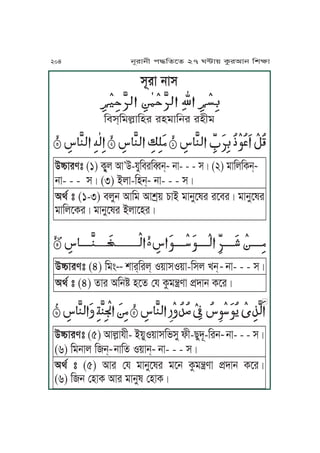 ২০৪ নূরানী পদ্ধতিতে ২৭ ঘন্টায় কুরআন শিক্ষা
সূরা নাস
بِسْمِ اللهِ الرَّحْمٰنِ الرَّحِيْمِ
বিসমিল্লাহির রহমানির রহীম
قُلْ اَعُوْذُ بِرَبِّ النَّاسِ ۞ مَلِكِ النَّاسِ ۞ اِلٰهِ النَّاسِ ۞
উচ্চারণঃ (১) কুল আ'উ-যুবিরব্বিন- না- - - স। (২) মালিকিন-
না- - - স। (৩) ইলা-হিন- না- - - স।
অর্থ ঃ (১-৩) বলুন আমি আশ্রয় চাই মানুষের রবের। মানুষের
মালিকের। মানুষের ইলাহের।
مِنْ شَرِّ الْوَسْوَاسِ الْخَنَّاسِ ۞
উচ্চারণঃ (৪) মিং-- শাররিল ওয়াসওয়া-সিল খন- না- - - স।
অর্থ ঃ (৪) তার অনিষ্ট হতে যে কুমন্ত্রণা প্রদান করে।
الَّذِيْ يُوَسْوِسُ فِيْ صُدُوْرِ النَّاسِ ۞ مِنَ الْجِنَّةِ وَالنَّاسِ ۞
উচ্চারণঃ (৫) আল্লাযী- ইয়ুওয়াসভিসু ফী-ছুদূ-রিন- না- - - স।
(৬) মিনাল জিন-নাতি ওয়ান- না- - - স।
অর্থ ঃ (৫) আর যে মানুষের মনে কুমন্ত্রণা প্রদান করে।
(৬) জিন হোক আর মানুষ হোক।